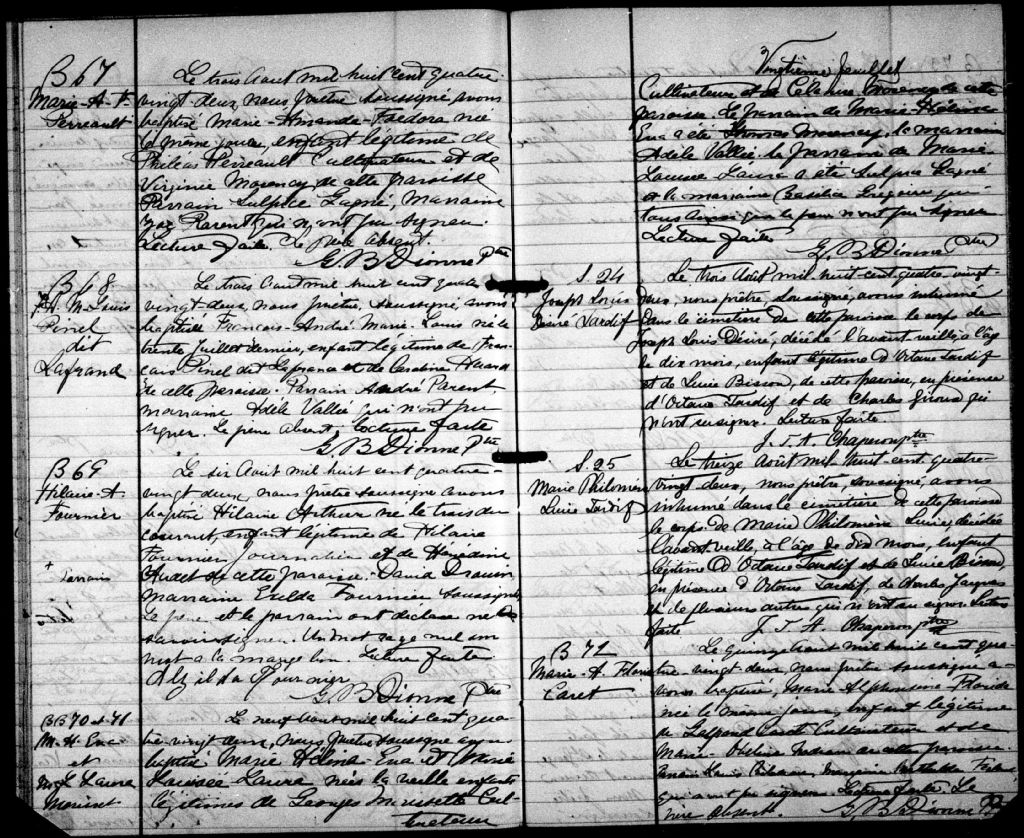 B 67
Marie-A-F.
Perreault
Le trois Aout mil huit cent quatre
vingt deux, nous prêtre soussigné avons
baptisé Marie-Amanda-Fedora née
le même jour, enfant légitime de
Philéas Perreault Cultivateur et de
Virginie Morency de cette paroisse
Parrain Sulpice Gagné, Marraine
Parent qui n'ont pu signer.
Lecture faite. Le père absent.
G. B. Dionne Ptre
B 68
F. A. M Louis
Pinel
dit
Lafrance
Le trois Aout mil huit cent quatre
vingt deux, nous prêtre, soussigné, avons
baptisé François-André-Marie-Louis né le
trente juillet dernier, enfant légitime de Fran-
çois Pinel dit Lafrance et de Caroline
de cette paroisse. Parrain André Parent,
marraine Adèle Vallée qui n'ont pu
signer. Le père absent. Lecture faite
G B Dionne Ptre
B 69
Hilaire-A
Fournier
+ parrain
Le six Août mil huit cent quatre-
vingt deux, nous prêtre soussigné avons
baptisé Hilaire Arthur né le trois du
courant, enfant légitime de Hilaire
Fournier, journalier et de
Audet de cette paroisse. David Drouin,
Marraine Fournier soussignée
Le père et le parrain ont déclaré ne
savoir signer. Un mot rayé nul un
mot à la marge bon. Lecture faite.
Fournier
G. B Dionne Ptre
BB 70 et 71
M. H. Eva
et
M. L. Laura
Le neuf Aout mil huit cent qua-
tre vingt deux, nous prêtre soussigné avons
baptisé Marie Hélène-Eva et Marie
Louise Laura nées la veille enfants
légitimes de Georges Cul-
tivateur
Vingtième feuillet
Cultivateur et de Morency de cette
paroisse. Le parrain de Marie Hélène
Eva a été Thomas Morency, la marraine
Adèle Vallée. Le parrain de Marie
Louise Laura a été Sulpice Gagné
et la marraine qui
tous aussi que le père n'ont pu signer
Lecture faite
G. B Dionne Ptre
S. 24
Joseph Louis
Désiré Tardif
Le trois Août mil huit cent quatre vingt-
deux, nous prêtre, soussigné, avons inhumé
dans le cimetière de cette paroisse le corps de
Joseph Louis Désiré, décédé l'avant veille, à l'âge
de dix mois, enfant légitime d'Octave Tardif
et de Luce Bisson, de cette paroisse, en présence
d'Octave Tardif et de Charles Giroux qui
n'ont su signer. Lecture faite.
J. T. A. Chaperon ptre
S. 25
Marie Philomène
Luce Tardif
Le treize Août mil-huit-cent-quatre-
vingt-deux, nous prêtre, soussigné, avons
inhumé dans le cimetière de cette paroisse
le corps de Marie Philomène Luce, décédée
l'avant veille, à l'âge de dix mois, enfant
légitime d'Octave Tardif et de Luce Bisson,
en présence d'Octave Tardif, de Charles Jacques
et de plusieurs autres qui n'ont su signer. Lecture
faite
J. T. A. Chaperon ptre
B 72
Marie-A. Florida
Caret
Le quinze Aout mil huit cent qua-
tre vingt deux nous prêtre soussigné a-
vons baptisé, Marie Alphonsine-Florida
née le même jour, enfant légitime
de Caret Cultivateur et de
Marie de cette paroisse.
qui n'ont pu signer. Lecture faite. Le
père absent. G. B Dionne Ptre